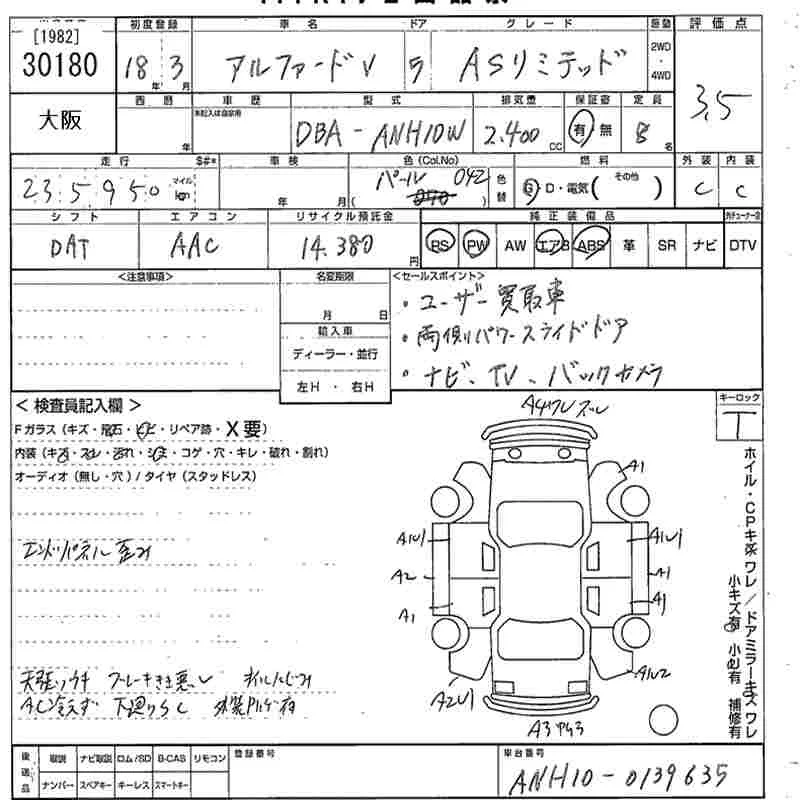 [1982]
30180
初度登録
18年 3月
車名
アルファードV
ドア
5
グレード
ASリミテッド
駆動
2WD・4WD
評価点
3.5
大阪
西暦
年
車歴
未記入は自家用
型式
DBA-ANH10W
排気量
2.400 CC
保証書
有 無
定員
8名
走行
235950
マイル
km
S#*
車検
年 月
色(Col.No)
パール 042
色替
燃料
G・D・電気( その他 )
外装
C
内装
C
シフト
DAT
エアコン
AAC
リサイクル預託金
14.380円
純正装備品
PS PW AW エアB ABS 革 SR ナビ
DTV
<注意事項>
名変期限
月 日
輸入車
ディーラー・並行
左H ・ 右H
<セールスポイント>
・ユーザー買取車
・両側パワースライドドア
・ナビ、TV、バックカメラ
<検査員記入欄>
Fガラス(キズ・飛石・ヒビ・リペア跡・X要)
内装(キズ・スレ・汚れ・シミ・コゲ・穴・キレ・破れ・割れ)
オーディオ(無し・穴)/タイヤ(スタッドレス)
エンドパネル歪み
ブレーキきき悪い
オイルにじみ
AC冷えず 下廻りSC
キーロック
T
ホイル・CPキズ ワレ/ドアミラーキズ ワレ
小キズ有 小凹有 補修有
A1
A1
A2
A1
A1
A3
後送品
取説 ナビ取説 ロム/SD B-CAS リモコン
ナンバー スペアキー キーレス スマートキー
登録番号
車台番号
ANH10-0139635